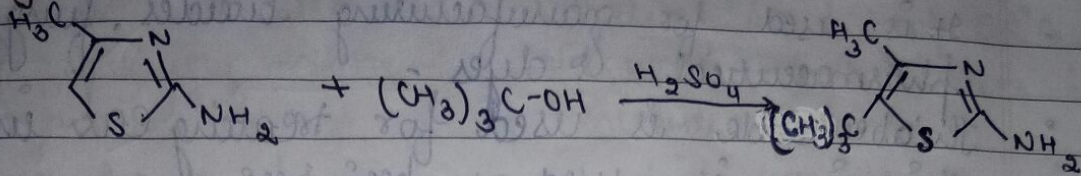 H₃C N S NH₂ + (CH₃)₃ C-OH H₂SO₄ H₃C N (CH₃)₃C S NH₂